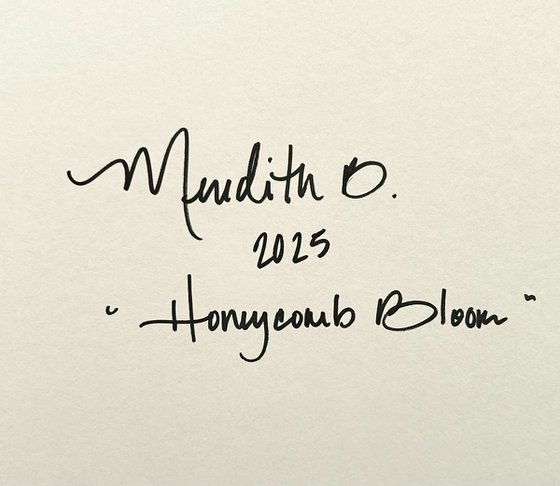 Meredith O.
2025
"Honeycomb Bloom"